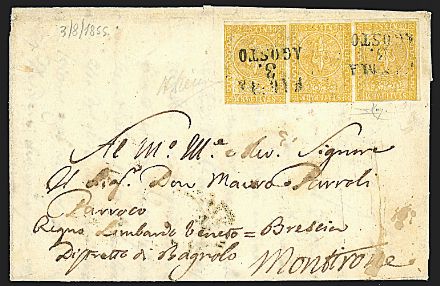 3/8/1855.
PARMA
3.
AGOSTO
Al M.º M.e e Rev.º Signore
Il Sig.r Don Mauro Parroli
Parroco
Regno Lombardo Veneto = Brescia
Distretto di Bagnolo Montirone